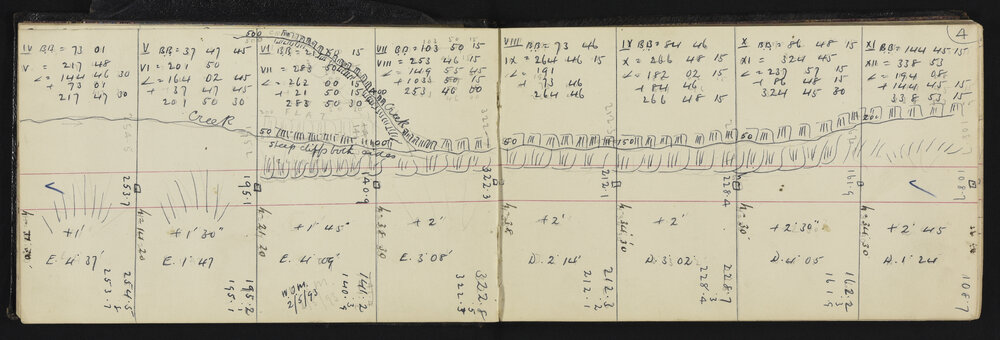 4
IV BB = 73 01
V = 217 48
∠ = 144 46 30
+ 73 01
217 47 30
V BB = 37 47 45
VI = 201 50
∠ = 164 02 45
+ 37 47 45
201 50 30
VI BB = 21 50 15
VII = 283 50
∠ = 262 00 15
+ 21 50 15
283 50 30
VII BB = 103 50 15
VIII = 253 46 15
∠ = 149 55 45
+ 103 50 15
253 46 00
VIII BB = 73 46
IX = 264 46 15
∠ = 191
+ 73 46
264 46
IX BB = 84 46
X = 266 48 15
∠ = 182 02 15
+ 84 46
266 48 15
X BB = 86 48 15
XI = 324 45
∠ = 237 57 15
+ 86 48 15
324 45 30
XI BB = 144 45 15
XII = 338 53
∠ = 194 08
+ 144 45 15
338 53 15
500
Creek
Creek
50
steep cliffs both sides
50
150
50
200
253.7
195.1
140.9
322.3
212.1
228.4
161.9
108.7
h = 14.20
h = 21.20
h = 38.30
h = 38
h = 34.30
h = 30'
h = 34.30
+ 1'
+ 1' 30"
+ 1' 45"
+ 2'
+ 2'
+ 2'
+ 2' 30"
+ 2' 45
E. 4° 37'
E. 1° 47
E. 4° 09'
E. 3° 08'
D. 2° 14'
D. 3° 02'
D. 4° 05
D. 1° 24
253.7
195.2
195.1
141.2
140.9
322.8
322.3
212.3
2
212.1
228.7
3
228.4
162.2
3
161.9
108.7
W.O.M.
2/5/93